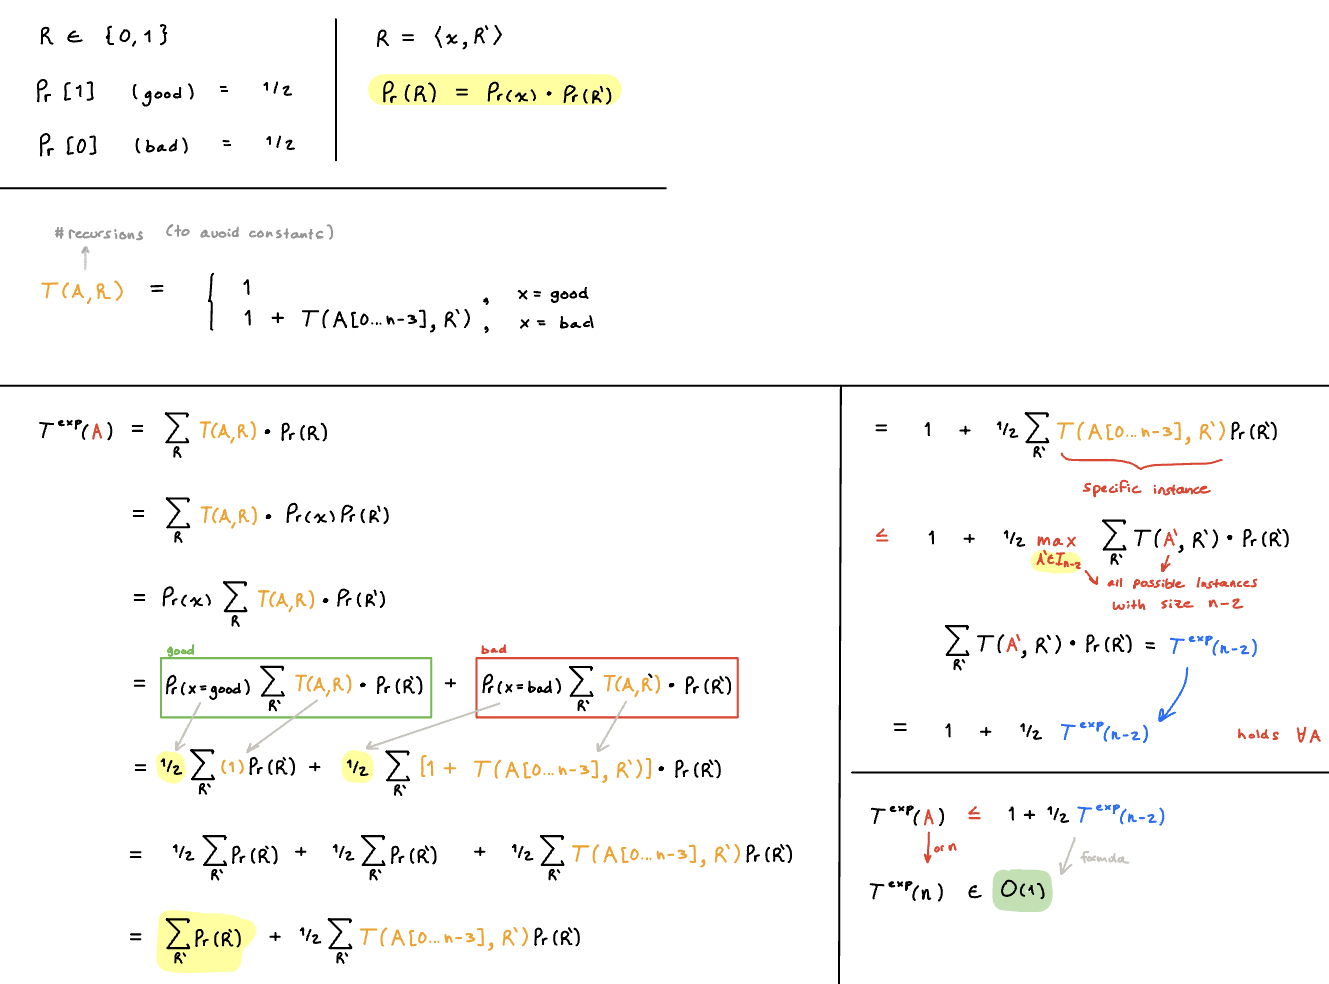 R ∈ {0,1}
Pr [1] (good) = 1/2
Pr [0] (bad) = 1/2
R = ⟨x, R`⟩
Pr(R) = Pr(x) • Pr(R`)
#recursions (to avoid constants)
T(A,R) = {
1 , x = good
1 + T(A[0...n-3], R`) , x = bad
T^exp(A) = ∑_R T(A,R) • Pr(R)
= ∑_R T(A,R) • Pr(x)Pr(R`)
= Pr(x) ∑_R T(A,R) • Pr(R`)
good bad
= Pr(x=good) ∑_R` T(A,R) • Pr(R`) + Pr(x=bad) ∑_R` T(A,R`) • Pr(R`)
= 1/2 ∑_R` (1)Pr(R`) + 1/2 ∑_R` [1 + T(A[0...n-3], R`)] • Pr(R`)
= 1/2 ∑_R` Pr(R`) + 1/2 ∑_R` Pr(R`) + 1/2 ∑_R` T(A[0...n-3], R`)Pr(R`)
= ∑_R` Pr(R`) + 1/2 ∑_R` T(A[0...n-3], R`)Pr(R`)
= 1 + 1/2 ∑_R` T(A[0...n-3], R`)Pr(R`)
specific instance
≤ 1 + 1/2 max_A`∈I_n-2 ∑_R` T(A`, R`) • Pr(R`)
all possible instances
with size n-2
∑_R` T(A`, R`) • Pr(R`) = T^exp(n-2)
= 1 + 1/2 T^exp(n-2) holds ∀A
T^exp(A) ≤ 1 + 1/2 T^exp(n-2)
or n
formula
T^exp(n) ∈ O(1)